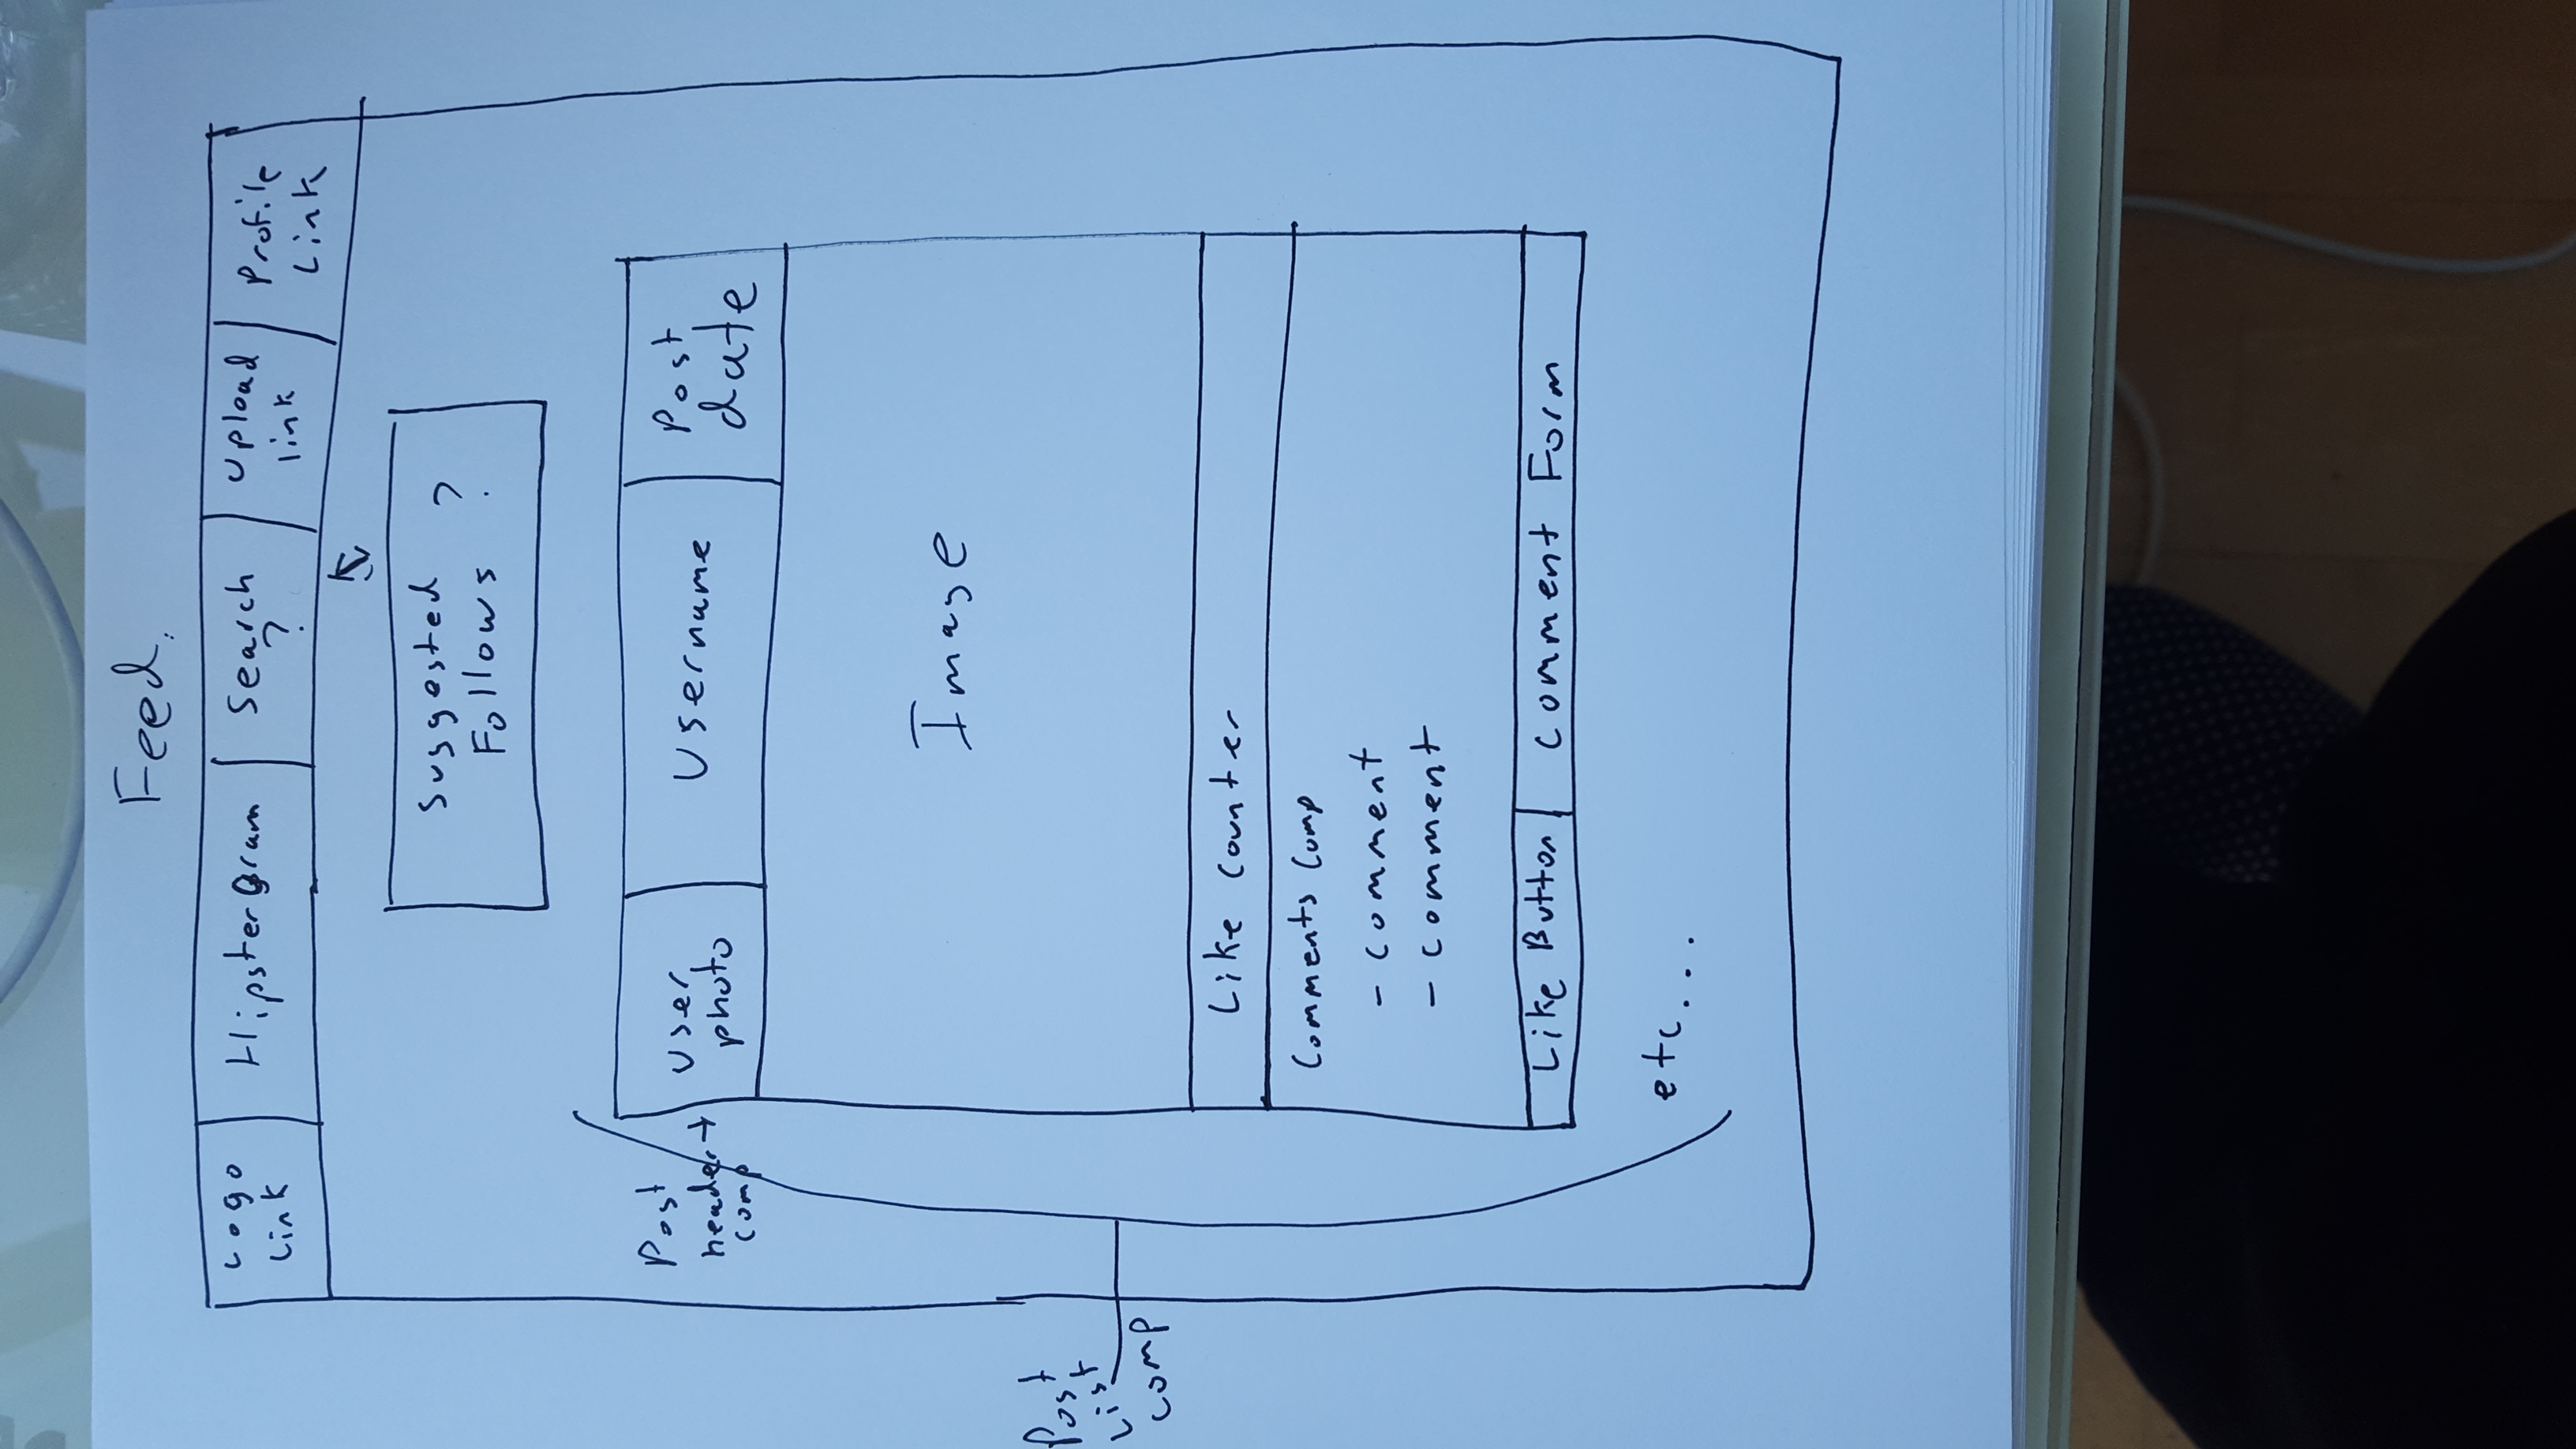 Feed.
Logo
Link
HipsterGram
Search
?
Upload
link
Profile
Link
Suggested
Follows ?
Post
header
comp
User
photo
Username
Post
date
Image
Post
List
comp
Like counter
Comments Comp
- comment
- comment
Like Button
comment Form
etc...